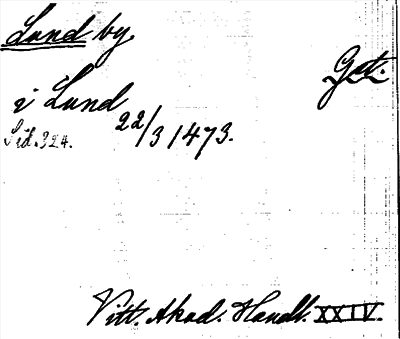 Lund by.
Got.
i Lund 22/3 1473.
Sid. 324.
Vitt. Akad. Handl. XXIV.